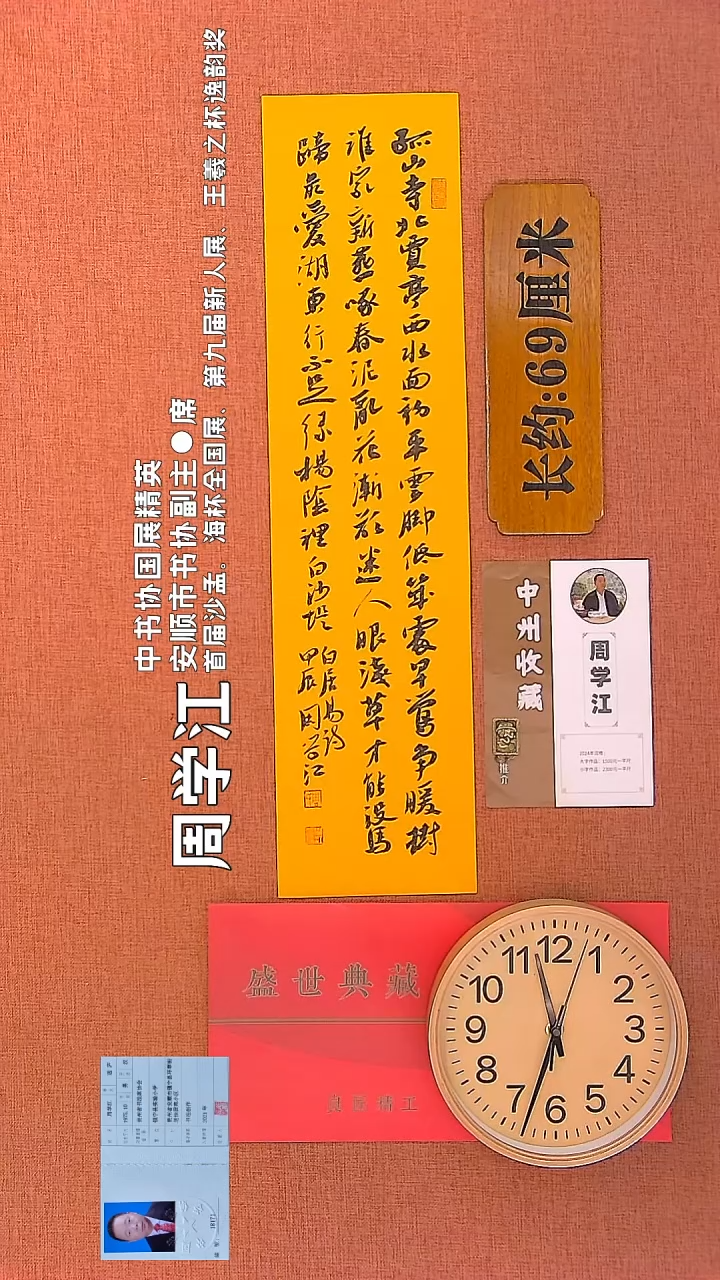 中书协国展精英
安顺市书协副主●席
首届沙孟。海杯全国展、第九届新人展、王羲之杯逸韵奖
周学江
孤山寺北賈亭西水面初平雲脚低幾處早鶯爭暖樹
誰家新燕啄春泥亂花漸欲迷人眼淺草才能沒馬
蹄最愛湖東行不足綠楊陰裡白沙堤
白居易詩
甲辰周学江
长约:69厘米
中州收藏
推介
周学江
盛世典藏
12
1
2
3
4
5
6
7
8
9
10
11